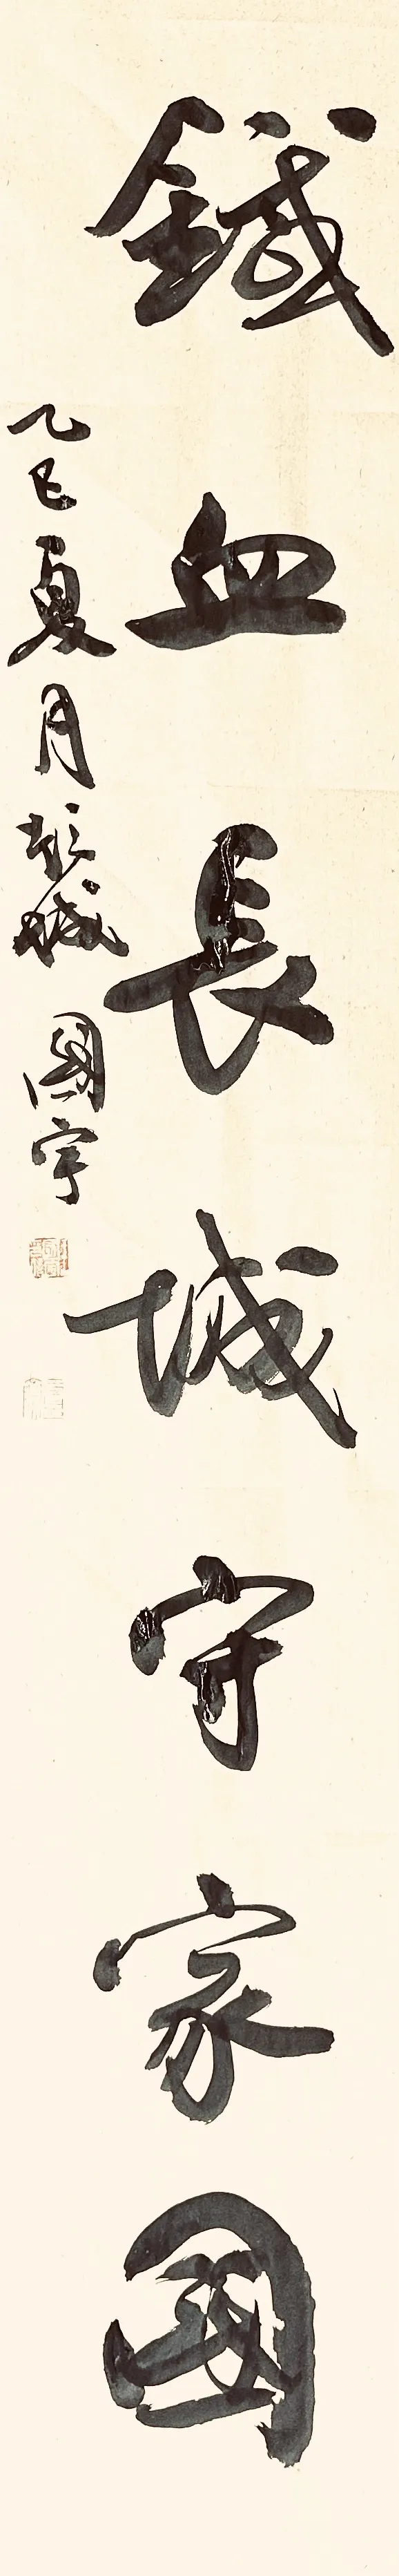 鐵血長城守家國
乙巳夏月彭城國宇